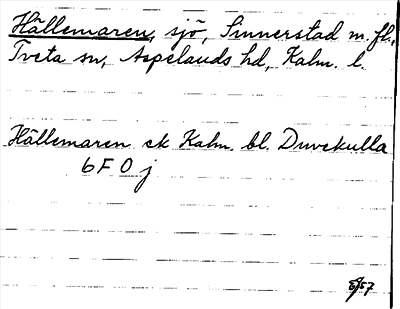 Hällemaren, sjö, Sinnerstad m. fl.,
Tveta sn, Aspelands hd, Kalm. l.
Hällemaren ek Kalm. bl. Duvekulla
6 F 0 j